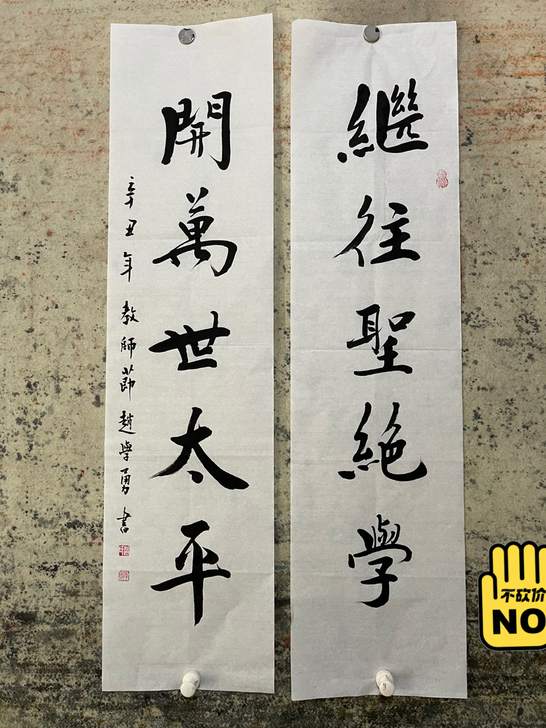 繼往聖絶學
開萬世太平
辛丑年教師節趙學勇書
不砍价
NO